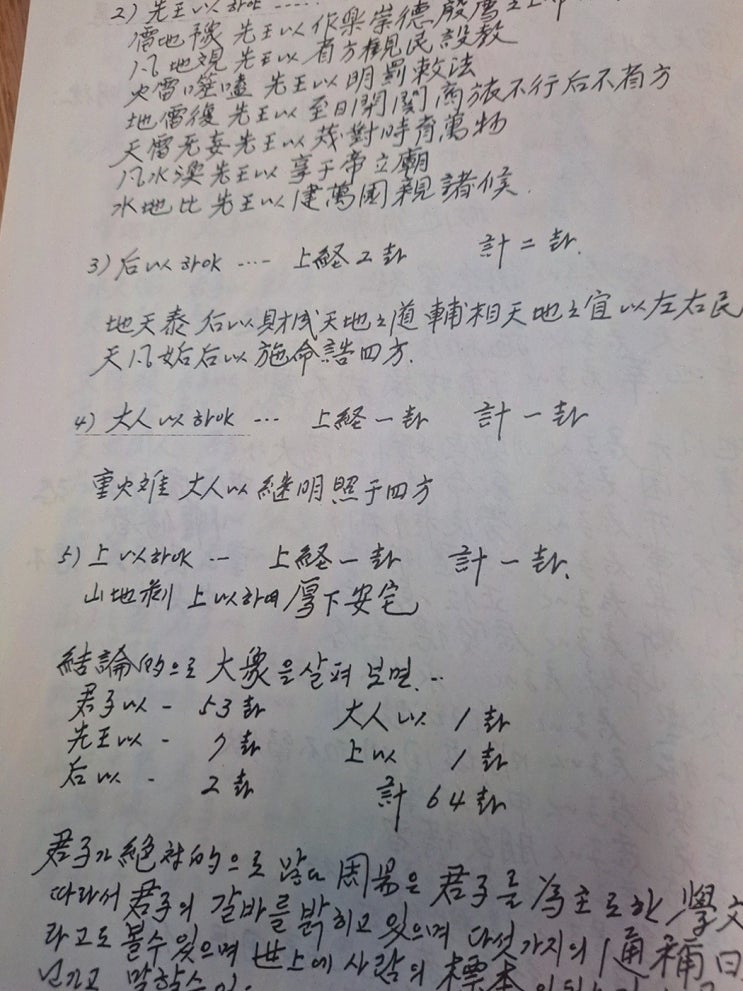 2) 先王以하야 .....
雷地豫 先王以 作樂崇德 殷薦之上帝
風地観 先王以 省方観民設教
火雷噬嗑 先王以 明罰敕法
地雷復 先王以 至日閉關 商旅不行 后不省方
天雷无妄 先王以 茂對時育萬物
風水渙 先王以 享于帝立廟
水地比 先王以 建萬國親諸候.
3) 后以하야 .... 上経2卦 計二卦.
地天泰 后以財成天地之道 輔相天地之宜 以左右民
天風姤 后以 施命誥四方.
4) 大人以하야 ... 上経一卦 計一卦
重火離 大人以 継明照于四方
5) 上以하야 ... 上経一卦 計一卦.
山地剝 上以하여 厚下安宅
結論的으로 大象을 살펴 보면...
君子以 - 53卦 大人以 1卦
先王以 - 7卦 上以 1卦
后以 - 2卦 計 64卦
君子가 絶対的으로 많고 周易은 君子를 為主로한 學文
따라서 君子의 갈바를 밝히고 있으며 다섯가지의
라고도 볼수있으며 世上에 사람의 標本
말할수